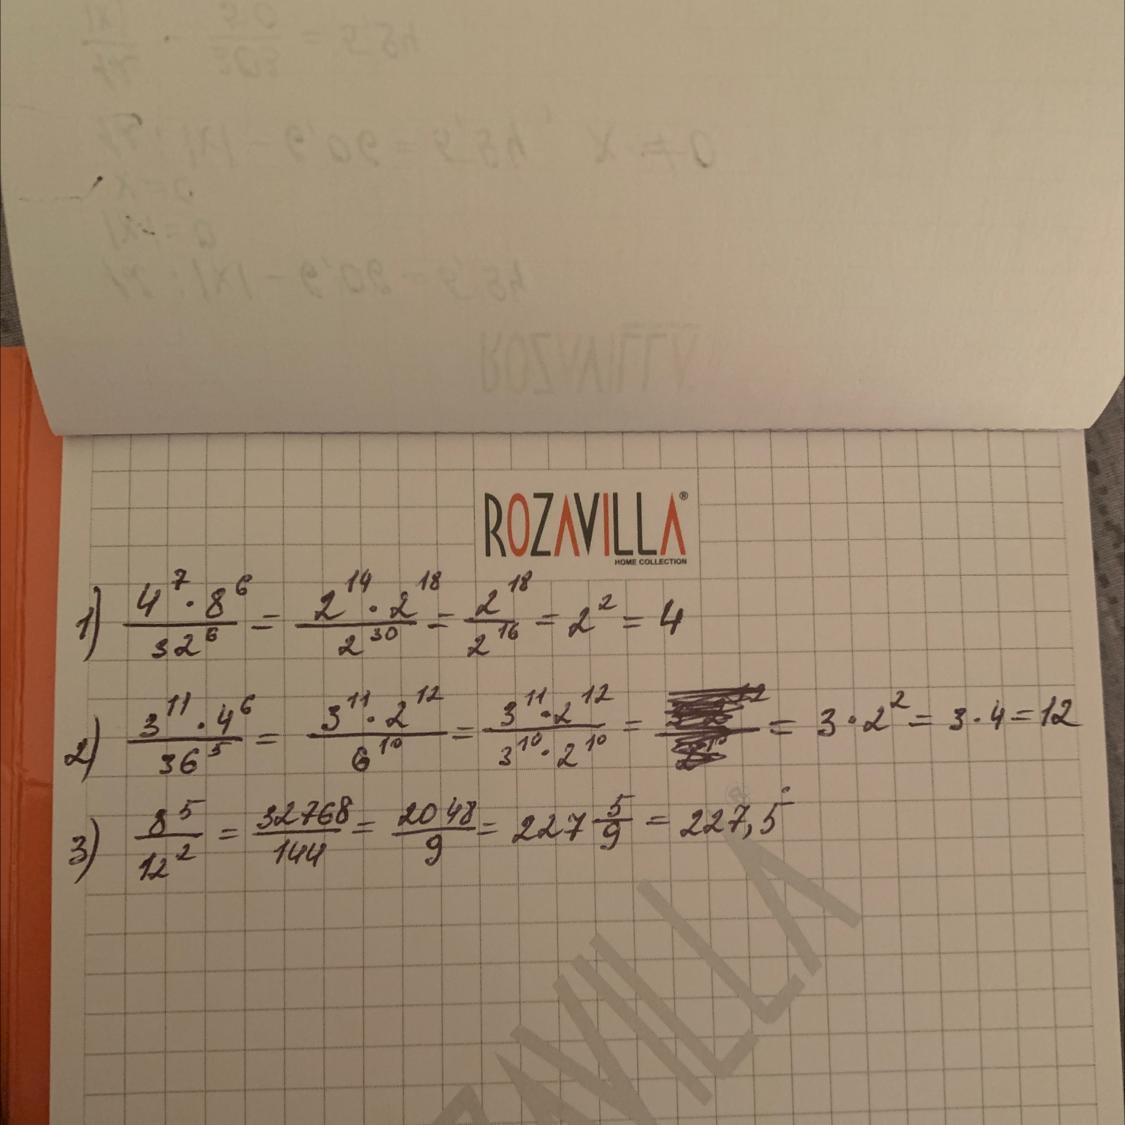 ROZAVILLA®
HOME COLLECTION
1) 4^7 · 8^6 / 32^6 = 2^14 · 2^18 / 2^30 = 2^18 / 2^16 = 2^2 = 4
2) 3^11 · 4^6 / 36^5 = 3^11 · 2^12 / 6^10 = 3^11 · 2^12 / 3^10 · 2^10 = = 3 · 2^2 = 3 · 4 = 12
3) 8^5 / 12^2 = 32768 / 144 = 2048 / 9 = 227 5/9 = 227,5